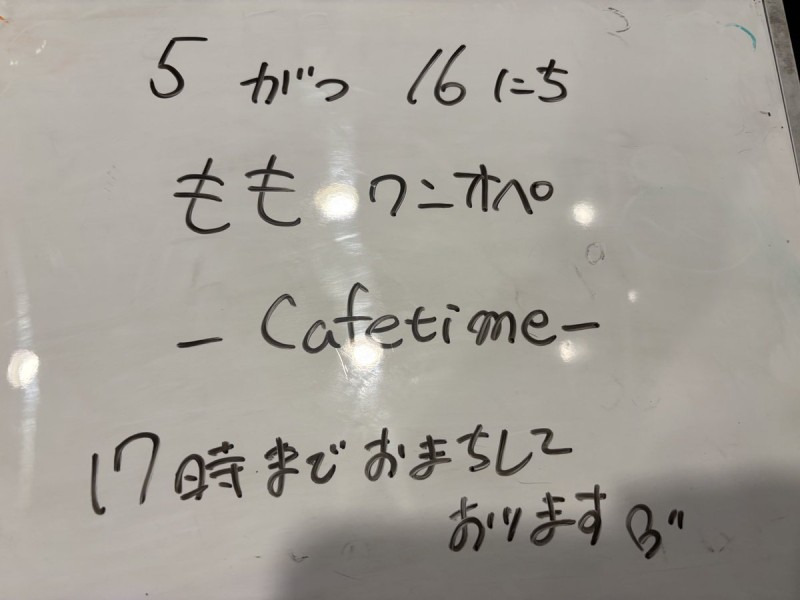 5 がつ 16 にち
もも ワンオペ
- Cafetime -
17時までおまちして
おります